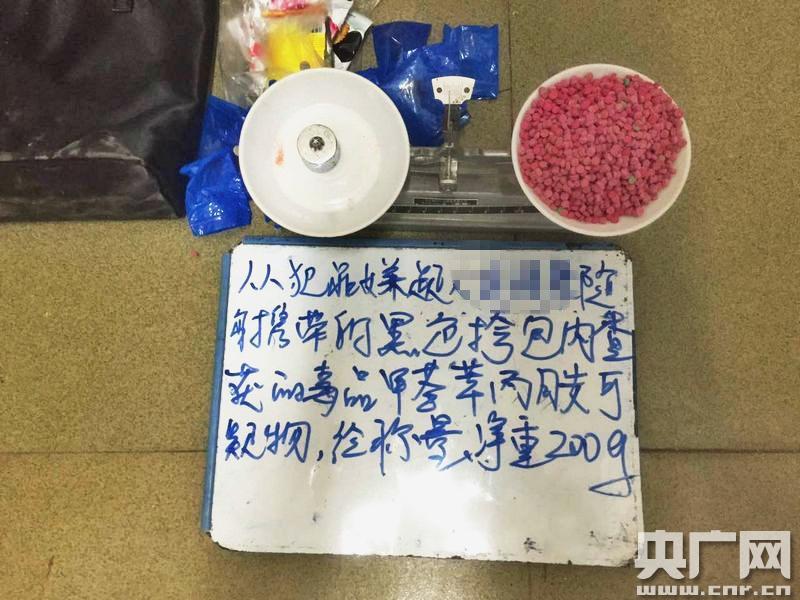 从犯罪嫌疑 随
身携带的黑色挎包内查
获的毒品甲基苯丙胺可
疑物,经称量,净重200g
央广网
www.cnr.cn